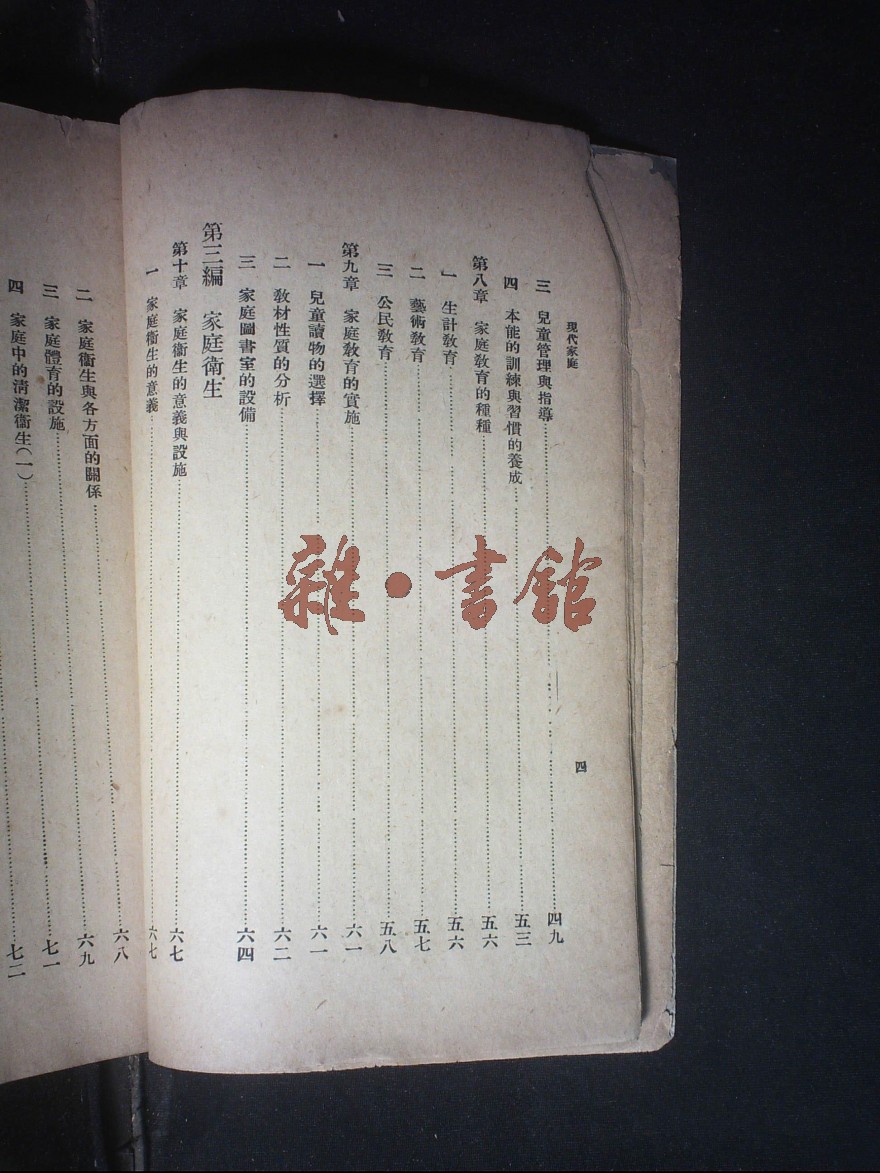 現代家庭
四
三 兒童管理與指導……四九
四 本能的訓練與習慣的養成……五三
第八章 家庭敎育的種種……五六
一 生計敎育……五六
二 藝術敎育……五七
三 公民敎育……五八
第九章 家庭敎育的實施……六一
一 兒童讀物的選擇……六一
二 敎材性質的分析……六二
三 家庭圖書室的設備……六四
第三編 家庭衛生
第十章 家庭衞生的意義與設施……六七
一 家庭衞生的意義……六七
二 家庭衞生與各方面的關係……六八
三 家庭體育的設施……六九
四 家庭中的清潔衞生(一)……七一
……七二
雜·書館